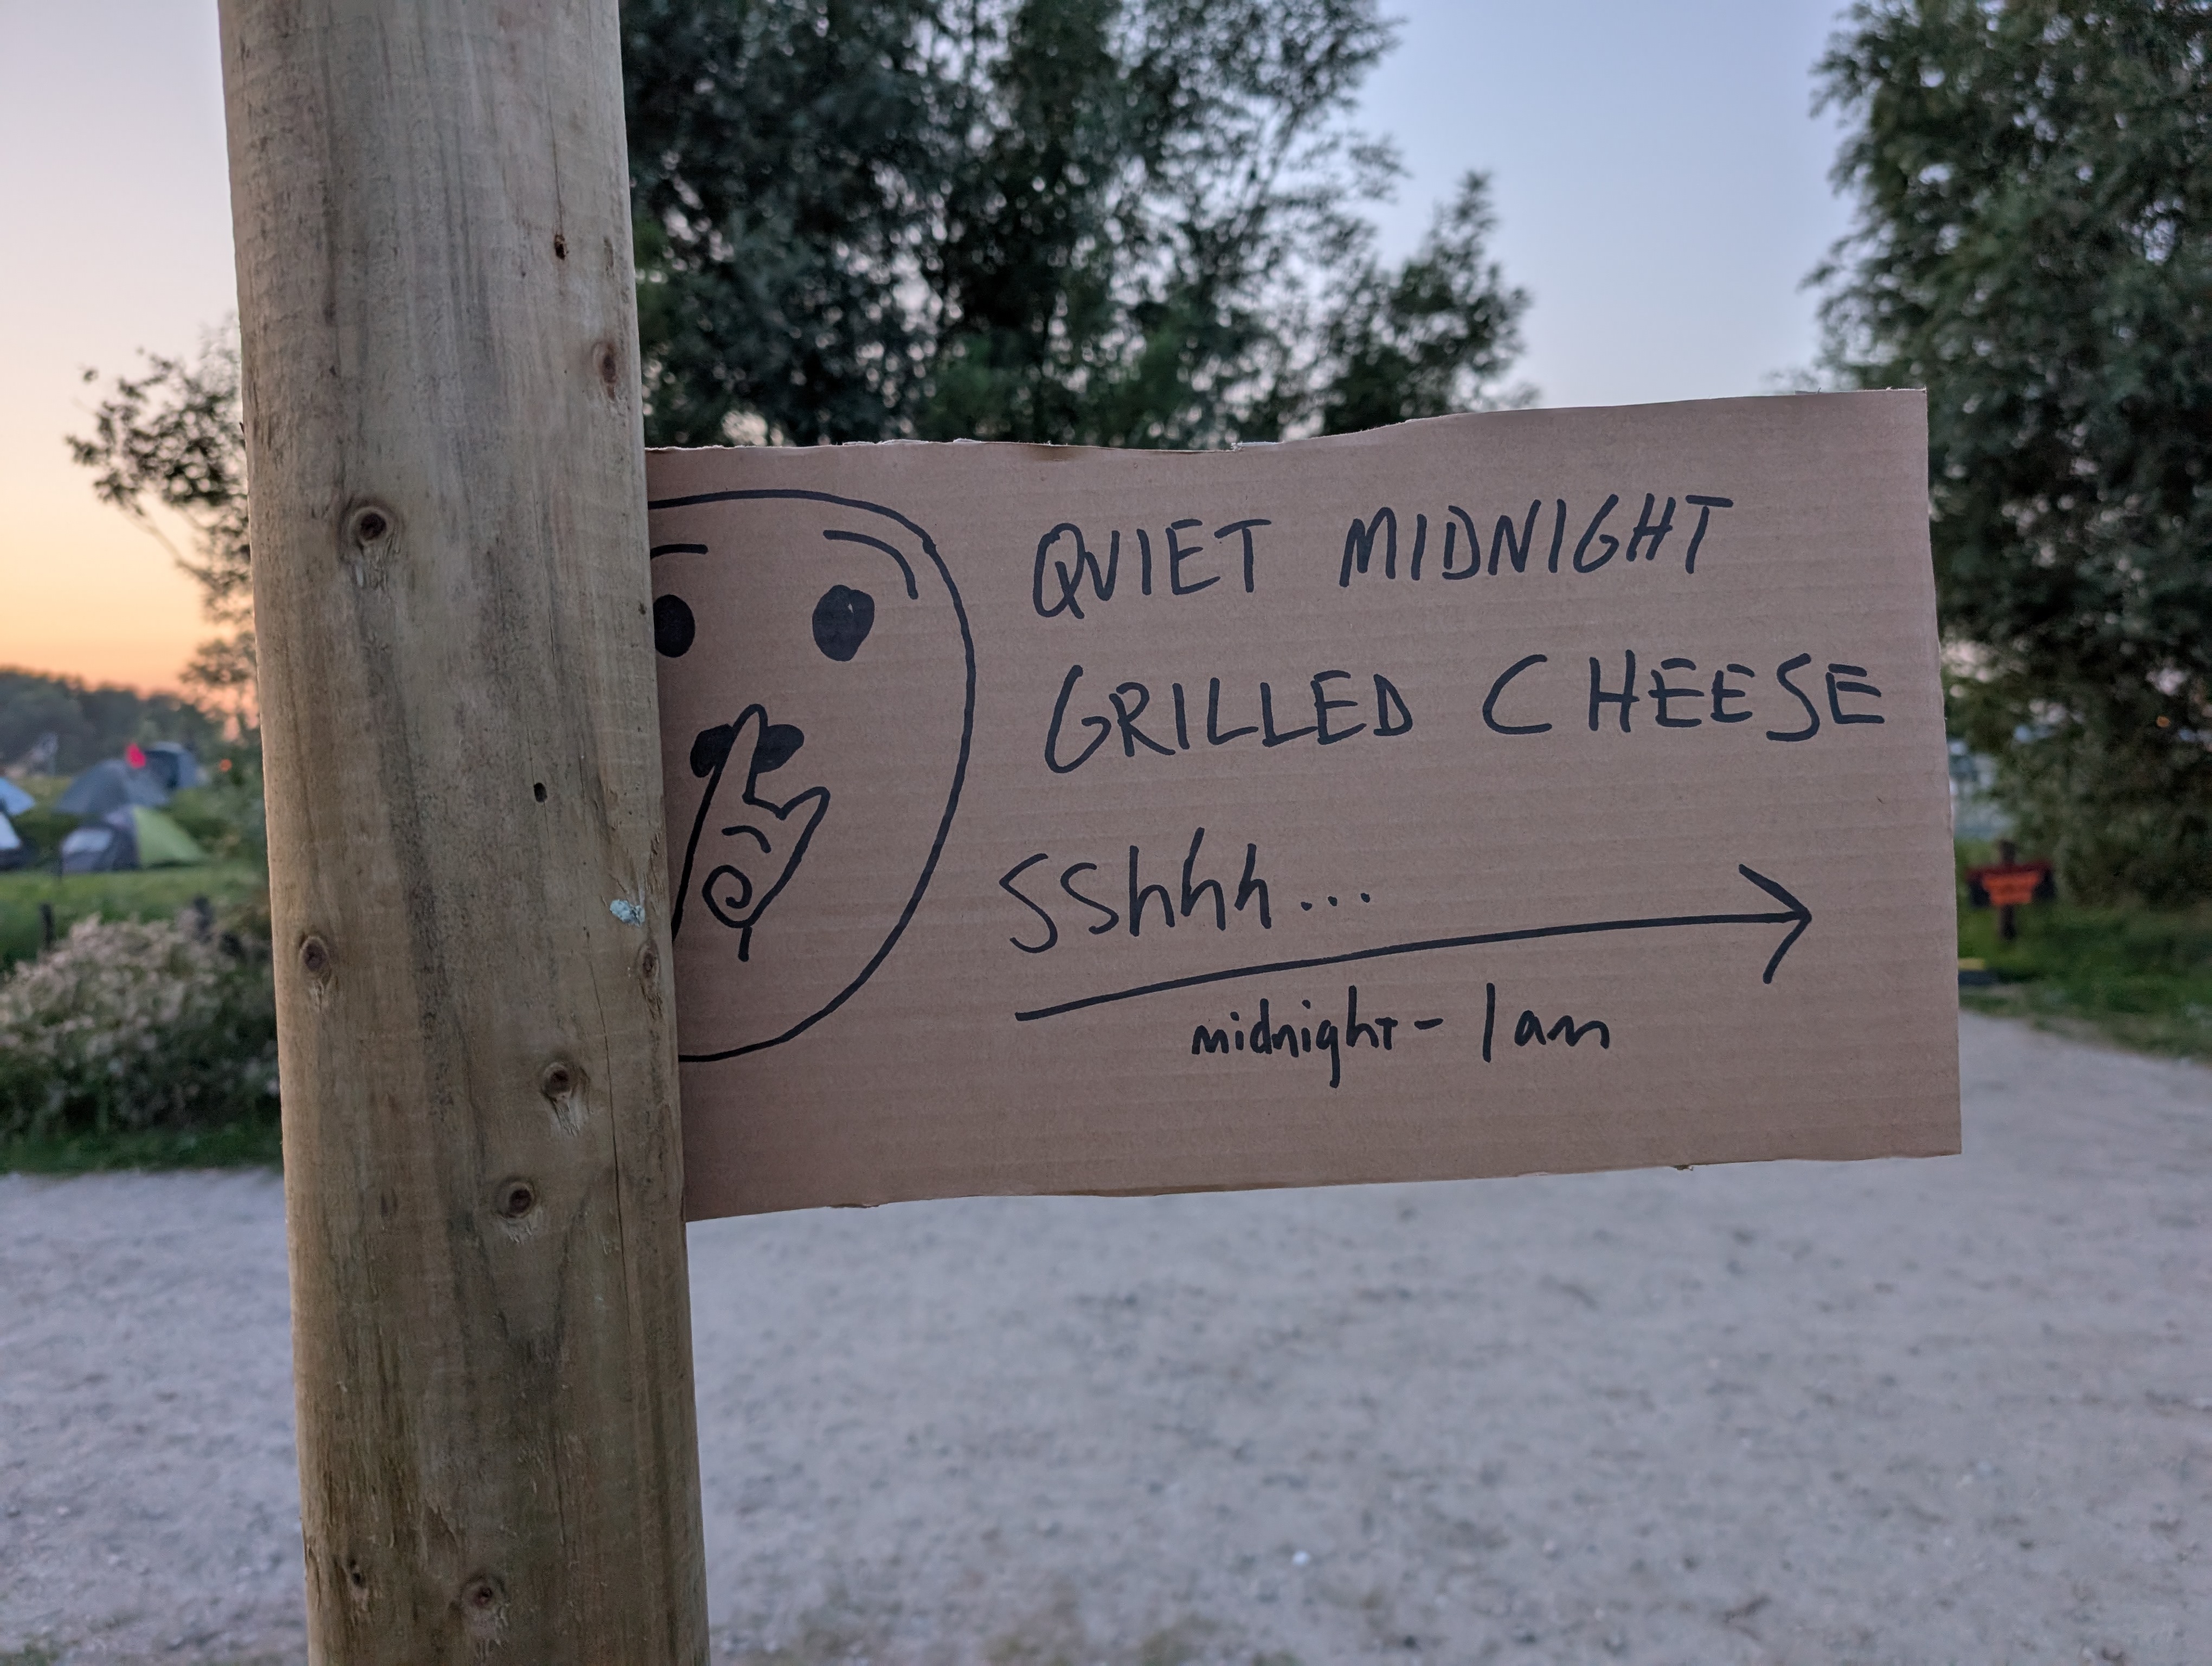 QUIET MIDNIGHT
GRILLED CHEESE
SShhh...
midnight - 1am